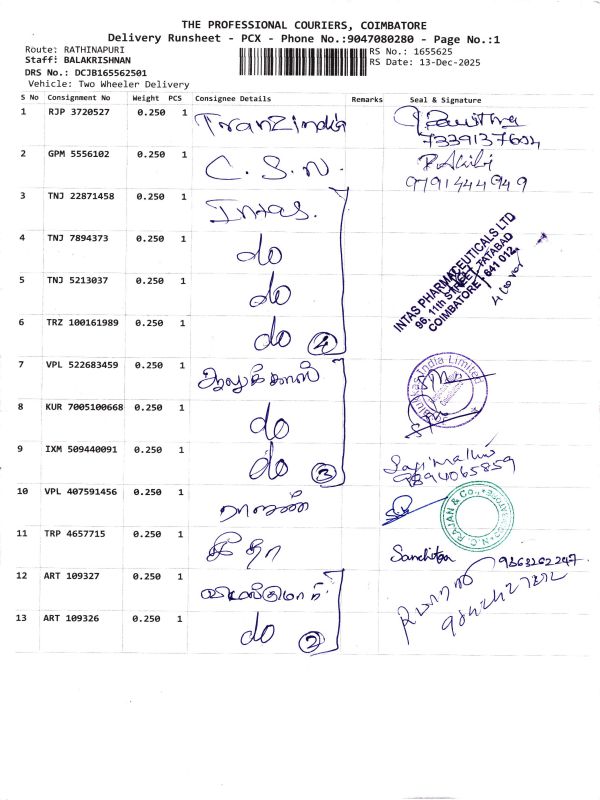 THE PROFESSIONAL COURIERS, COIMBATORE
Delivery Runsheet - PCX - Phone No.:9047080280 - Page No.:1
Route: RATHINAPURI
Staff: BALAKRISHNAN
DRS No.: DCJB165562501
Vehicle: Two Wheeler Delivery
RS No.: 1655625
RS Date: 13-Dec-2025
S No Consignment No Weight PCS Consignee Details Remarks Seal & Signature
1 RJP 3720527 0.250 1 TranZindia Pavithra
7339137604
2 GPM 5556102 0.250 1 C.S.N.
9791444949
3 TNJ 22871458 0.250 1 Intas.
4 TNJ 7894373 0.250 1 do
5 TNJ 5213037 0.250 1 do
6 TRZ 100161989 0.250 1 do 4
INTAS PHARMACEUTICALS LTD
96, 11th STREET, TATABAD
COIMBATORE - 641 012.
7 VPL 522683459 0.250 1 ஆலுக்காஸ்
Jolukkas India Limited
8 KUR 7005100668 0.250 1 do
9 IXM 509440091 0.250 1 do 3
9894065859
10 VPL 407591456 0.250 1 ராஜன்
N.C. RAJAN & CO.,
11 TRP 4657715 0.250 1 கீதா
9363262247
12 ART 109327 0.250 1
13 ART 109326 0.250 1 do 2